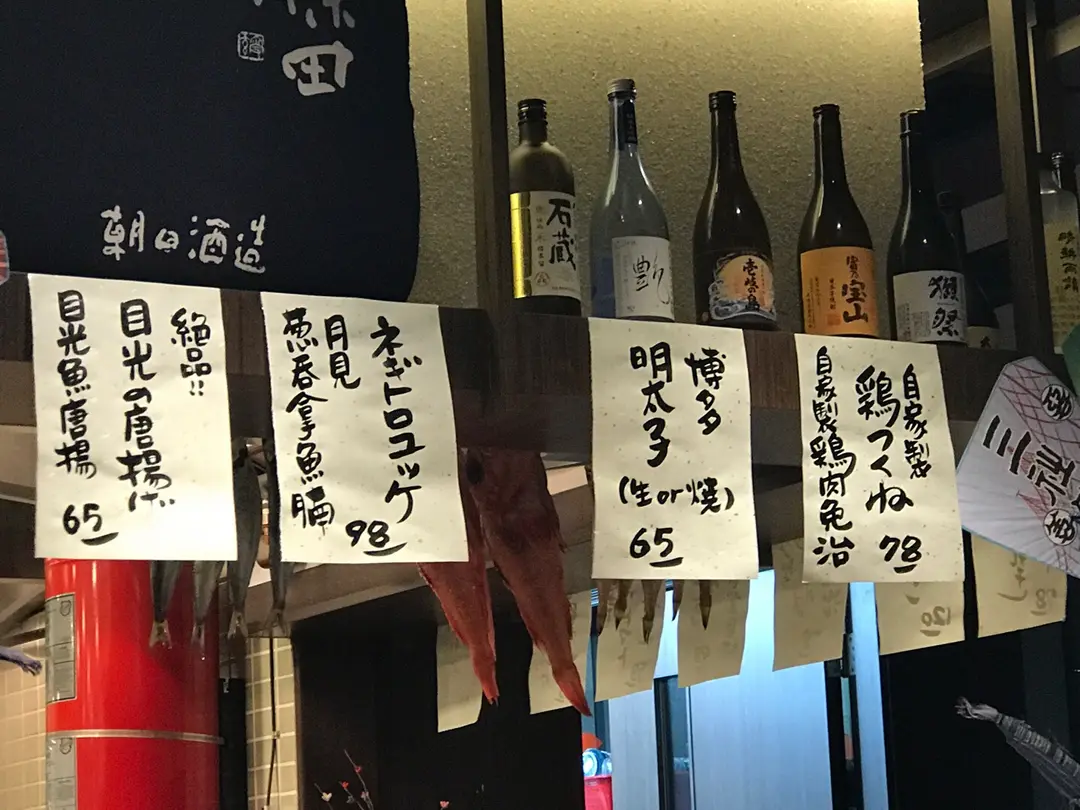 田
朝日酒造
石蔵
艶
壱岐の島
富乃宝山
獺祭
絶品!!
目光の唐揚げ
目光魚唐揚
65
ネギトロユッケ
月見
葱吞拿魚腩
98
博多
明太子
(生or焼)
65
自家製
鶏つくね
自家製鶏肉免治
78
120